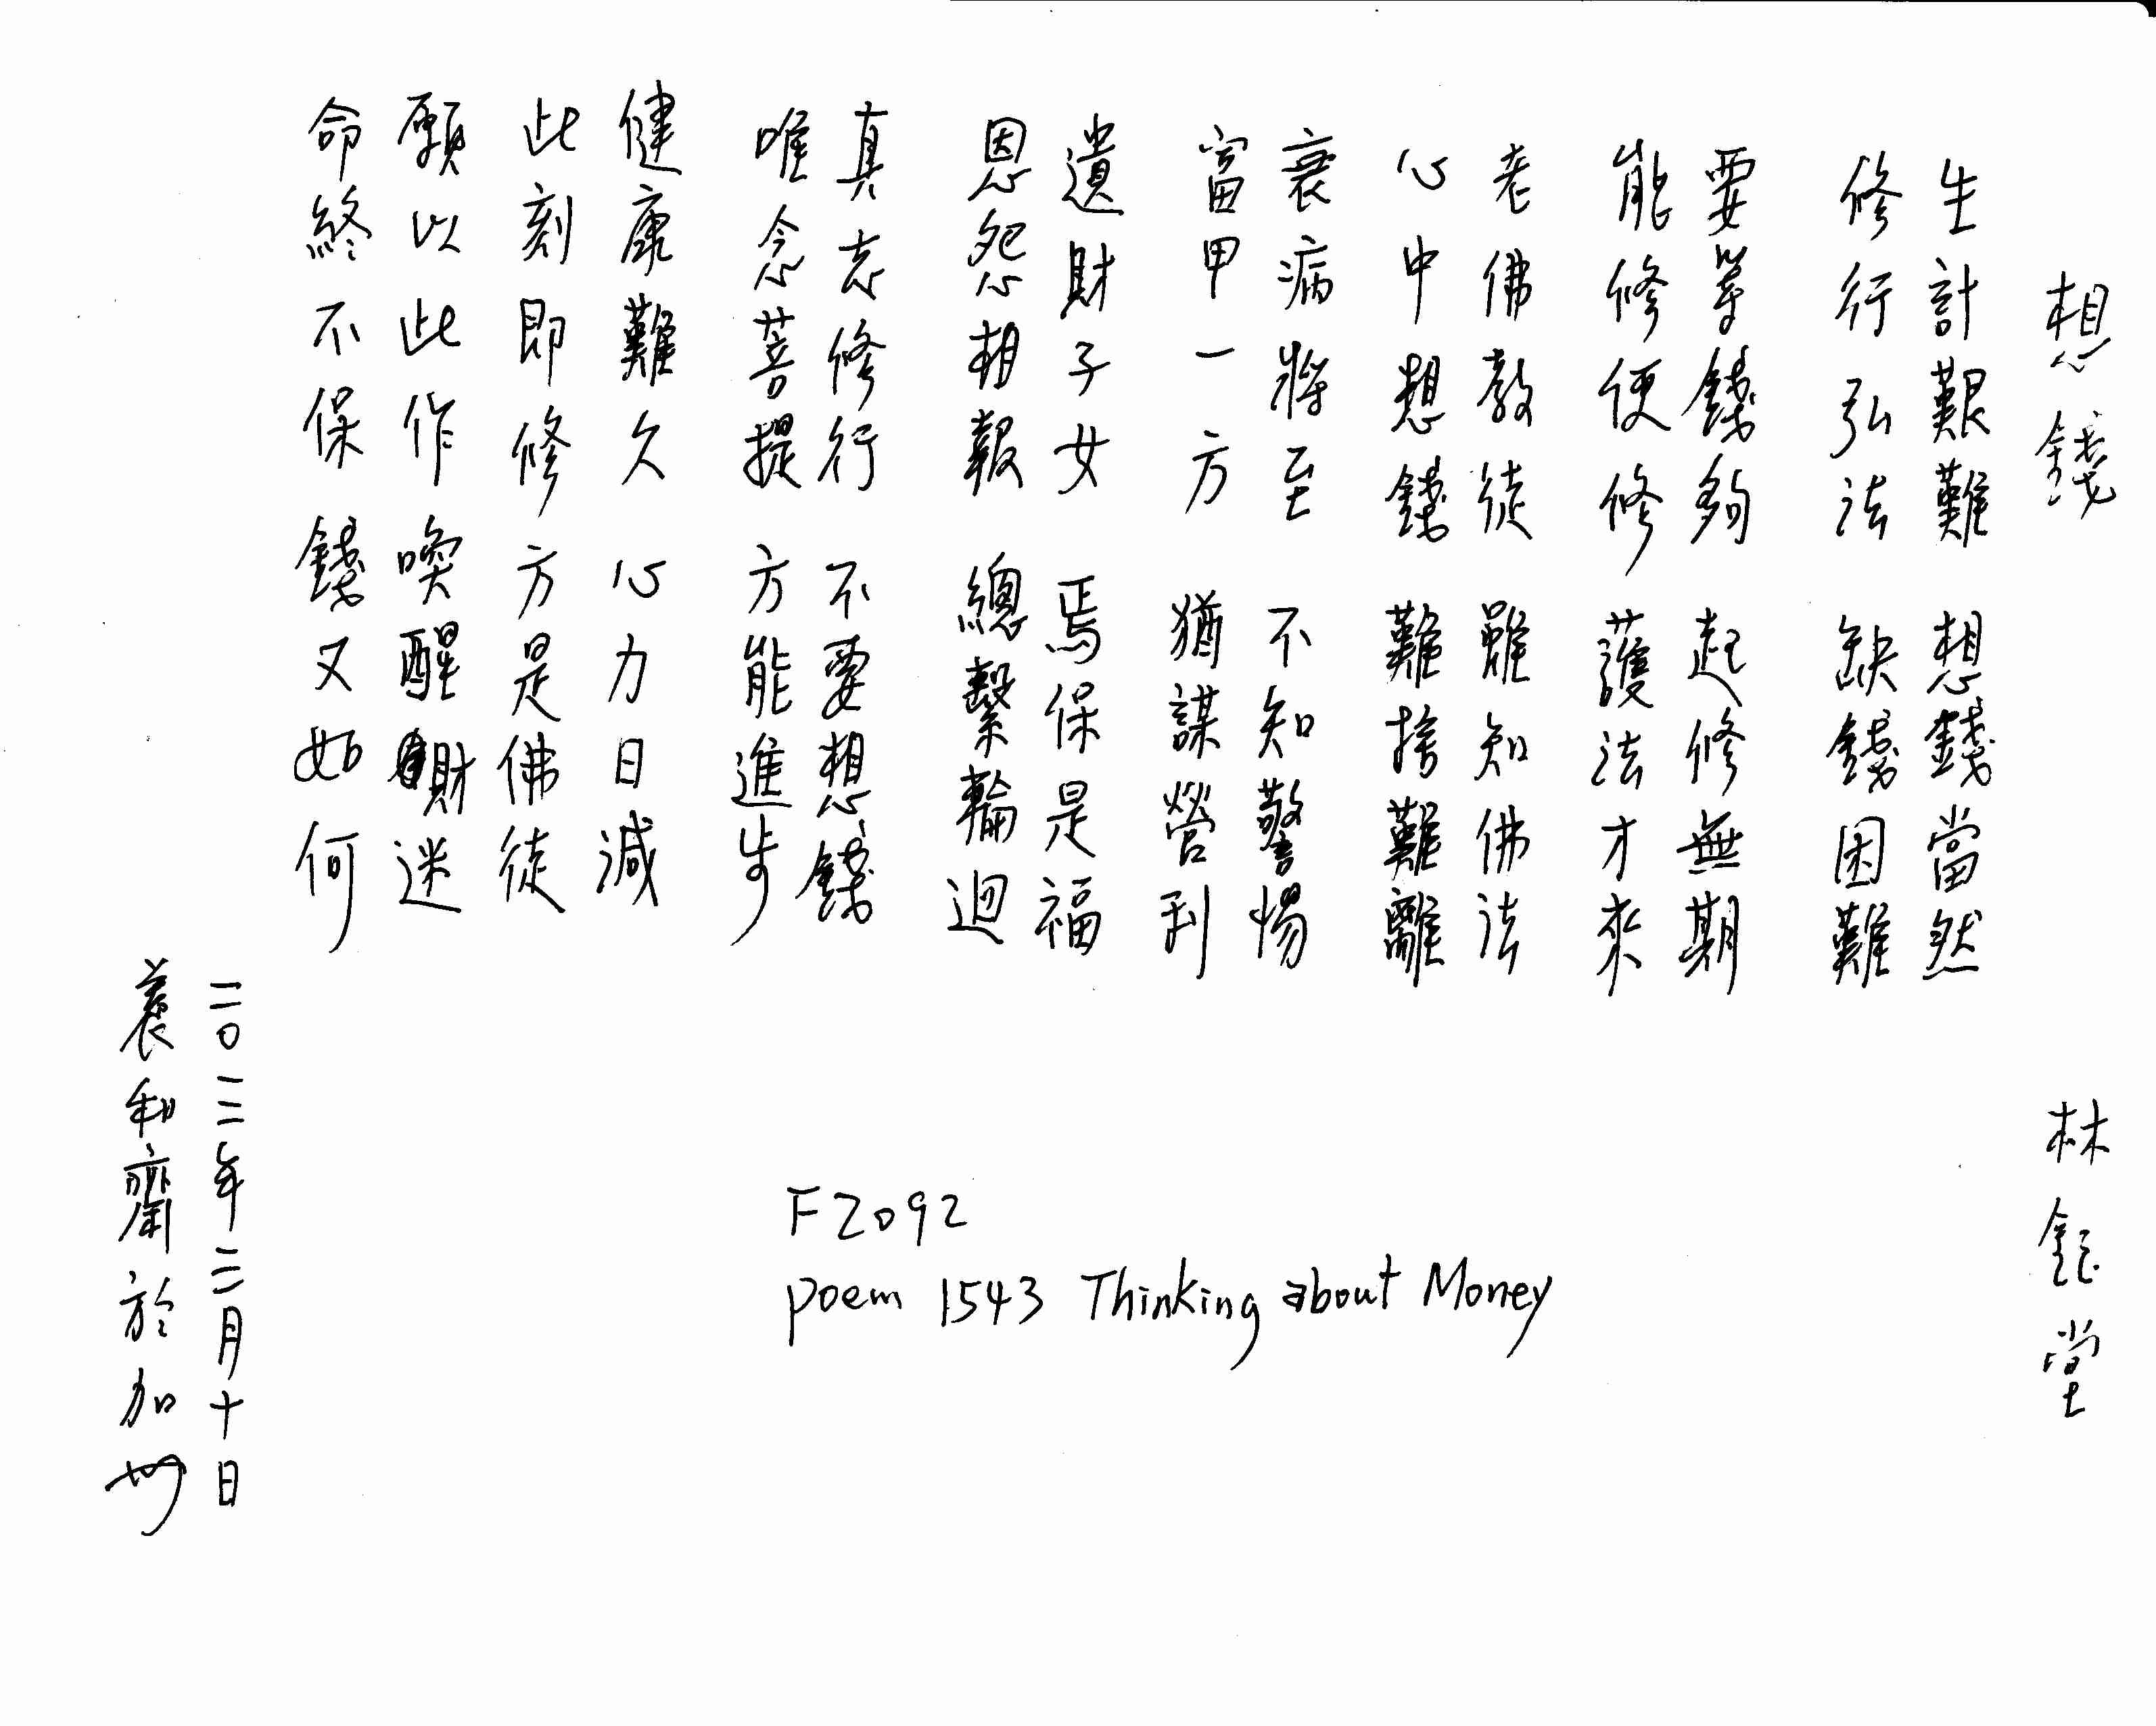 想錢　林鈺堂
生計艱難　想錢當然
修行弘法　缺錢困難
要等錢夠　起修無期
能修便修　護法才來
老佛教徒　雖知佛法
心中想錢　難捨難離
衰病將至　不知警惕
富甲一方　猶謀營利
遺財子女　焉保是福
恩怨相報　總繫輪迴
真志修行　不要想錢
唯念菩提　方能進步
健康難久　心力日減
此刻即修　方是佛徒
願以此作　喚醒財迷
命終不保　錢又如何
二〇二二年二月十日
養和齋於加州
FZ092
poem 1543 Thinking about Money